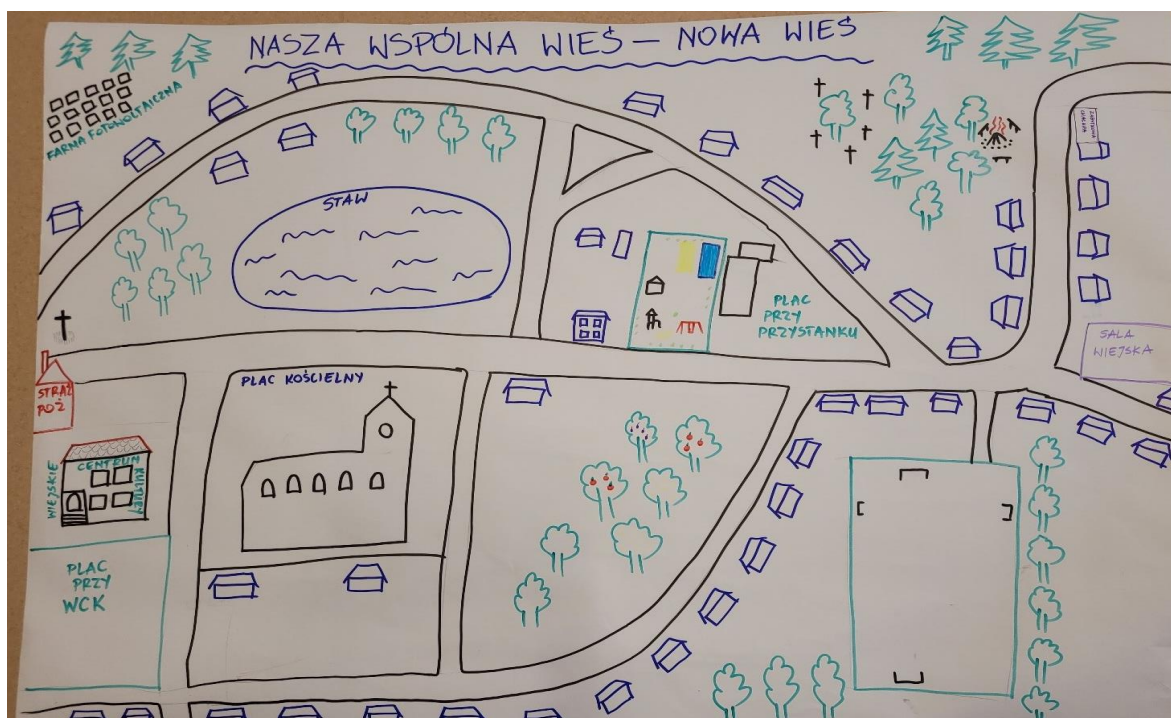 NASZA WSPÓLNA WIEŚ – NOWA WIEŚ
FARMA FOTOWOLTAICZNA
STAW
PLAC
PRZY
PRZYSTANKU
SALA
WIEJSKA
STRAŻ
POŻ
PLAC KOŚCIELNY
WIEJSKIE
CENTRUM
KULTURY
PLAC
PRZY
WCK